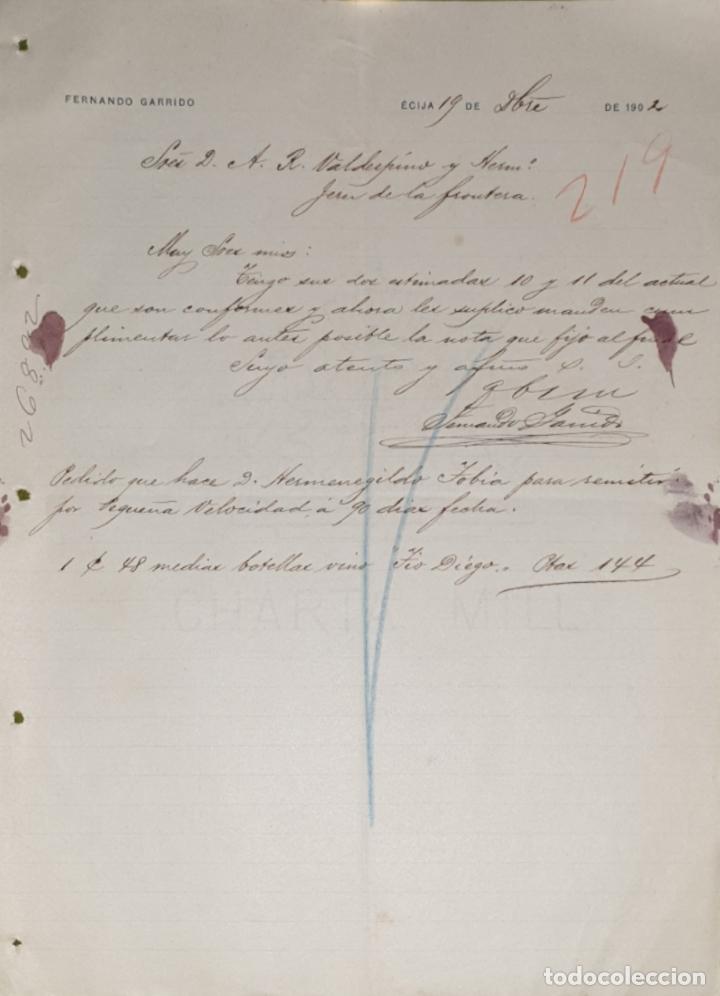 FERNANDO GARRIDO
ÉCIJA 19 DE Dbre DE 1902
Sres D. A. R. Valdespino y Herm.º
Jerez de la frontera.
219
Muy Sres mios:
Tengo sus dos estimadas 10 y 11 del actual
que son conformes y ahora les suplico manden cum
plimentar lo antes posible la nota que fijo al final
Suyo atento y afmo S. S.
q b s m
Fernando Garrido
Pedido que hace D. Hermenegildo Tobia para remitir
por pequeña velocidad á 90 dias fecha.
1 C 48 medias botellas vino "Tio Diego" Ptas 144
CHARTA MILL
todocoleccion